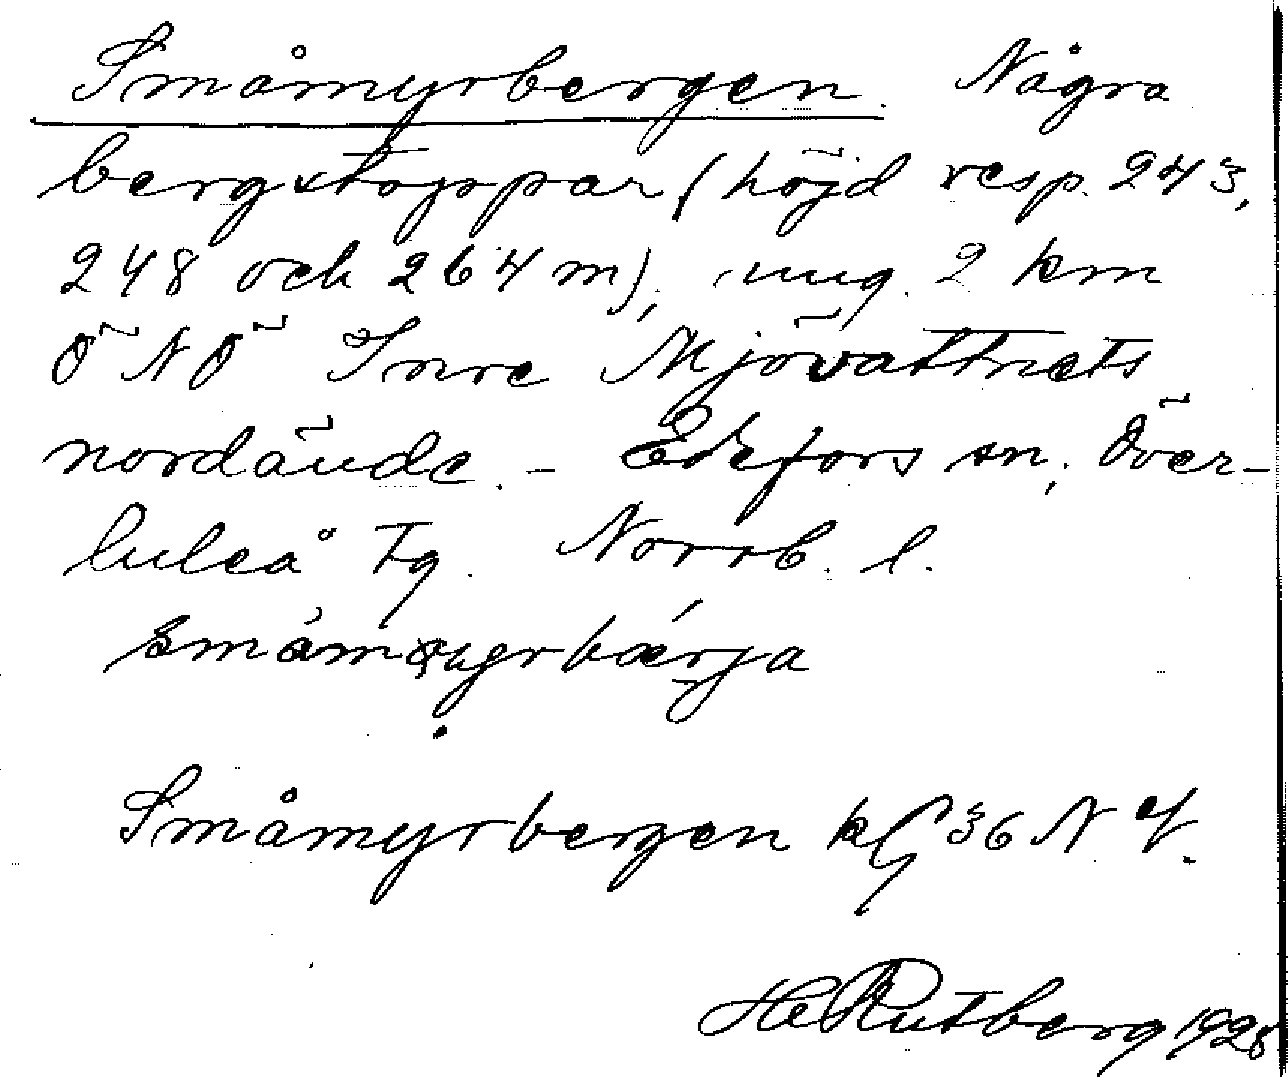 Småmyrbergen. Några
bergstoppar (höjd resp. 243,
248 och 264 m), ung. 2 km
ÖNÖ Inre Mjövattnets
nordände. – Edefors sn, Över-
luleå tg. Norrb. l.
Småmyrbergen kbl 36 NV.
HeRutberg 1928